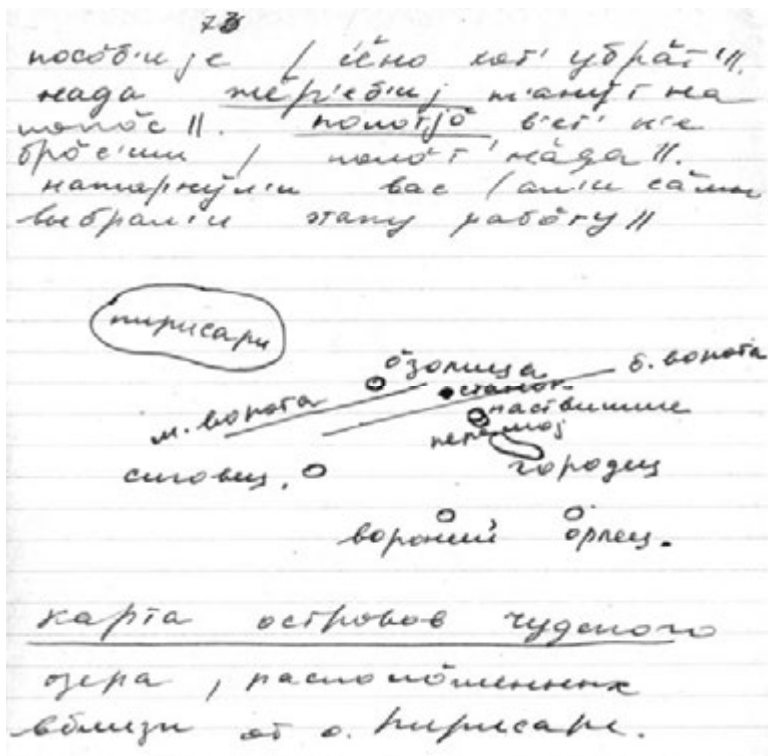 73
пособ'иjе / с'ено хот' убрат' ||.
нада жер'еб'иj т'анут на
полос ||. полотjо в'ет' н'е
брос'иш / полот' нада ||.
нат'арнул'и вас / ал'и сами
выбрал'и этаку работу ||
пирисари
озолица
б. ворота
станок
м. ворота
паствишше
перемој
сиговец.
городец
вороний орлец.
карта островов чудского
озера, расположенных
вблизи от о. Пирисаре.